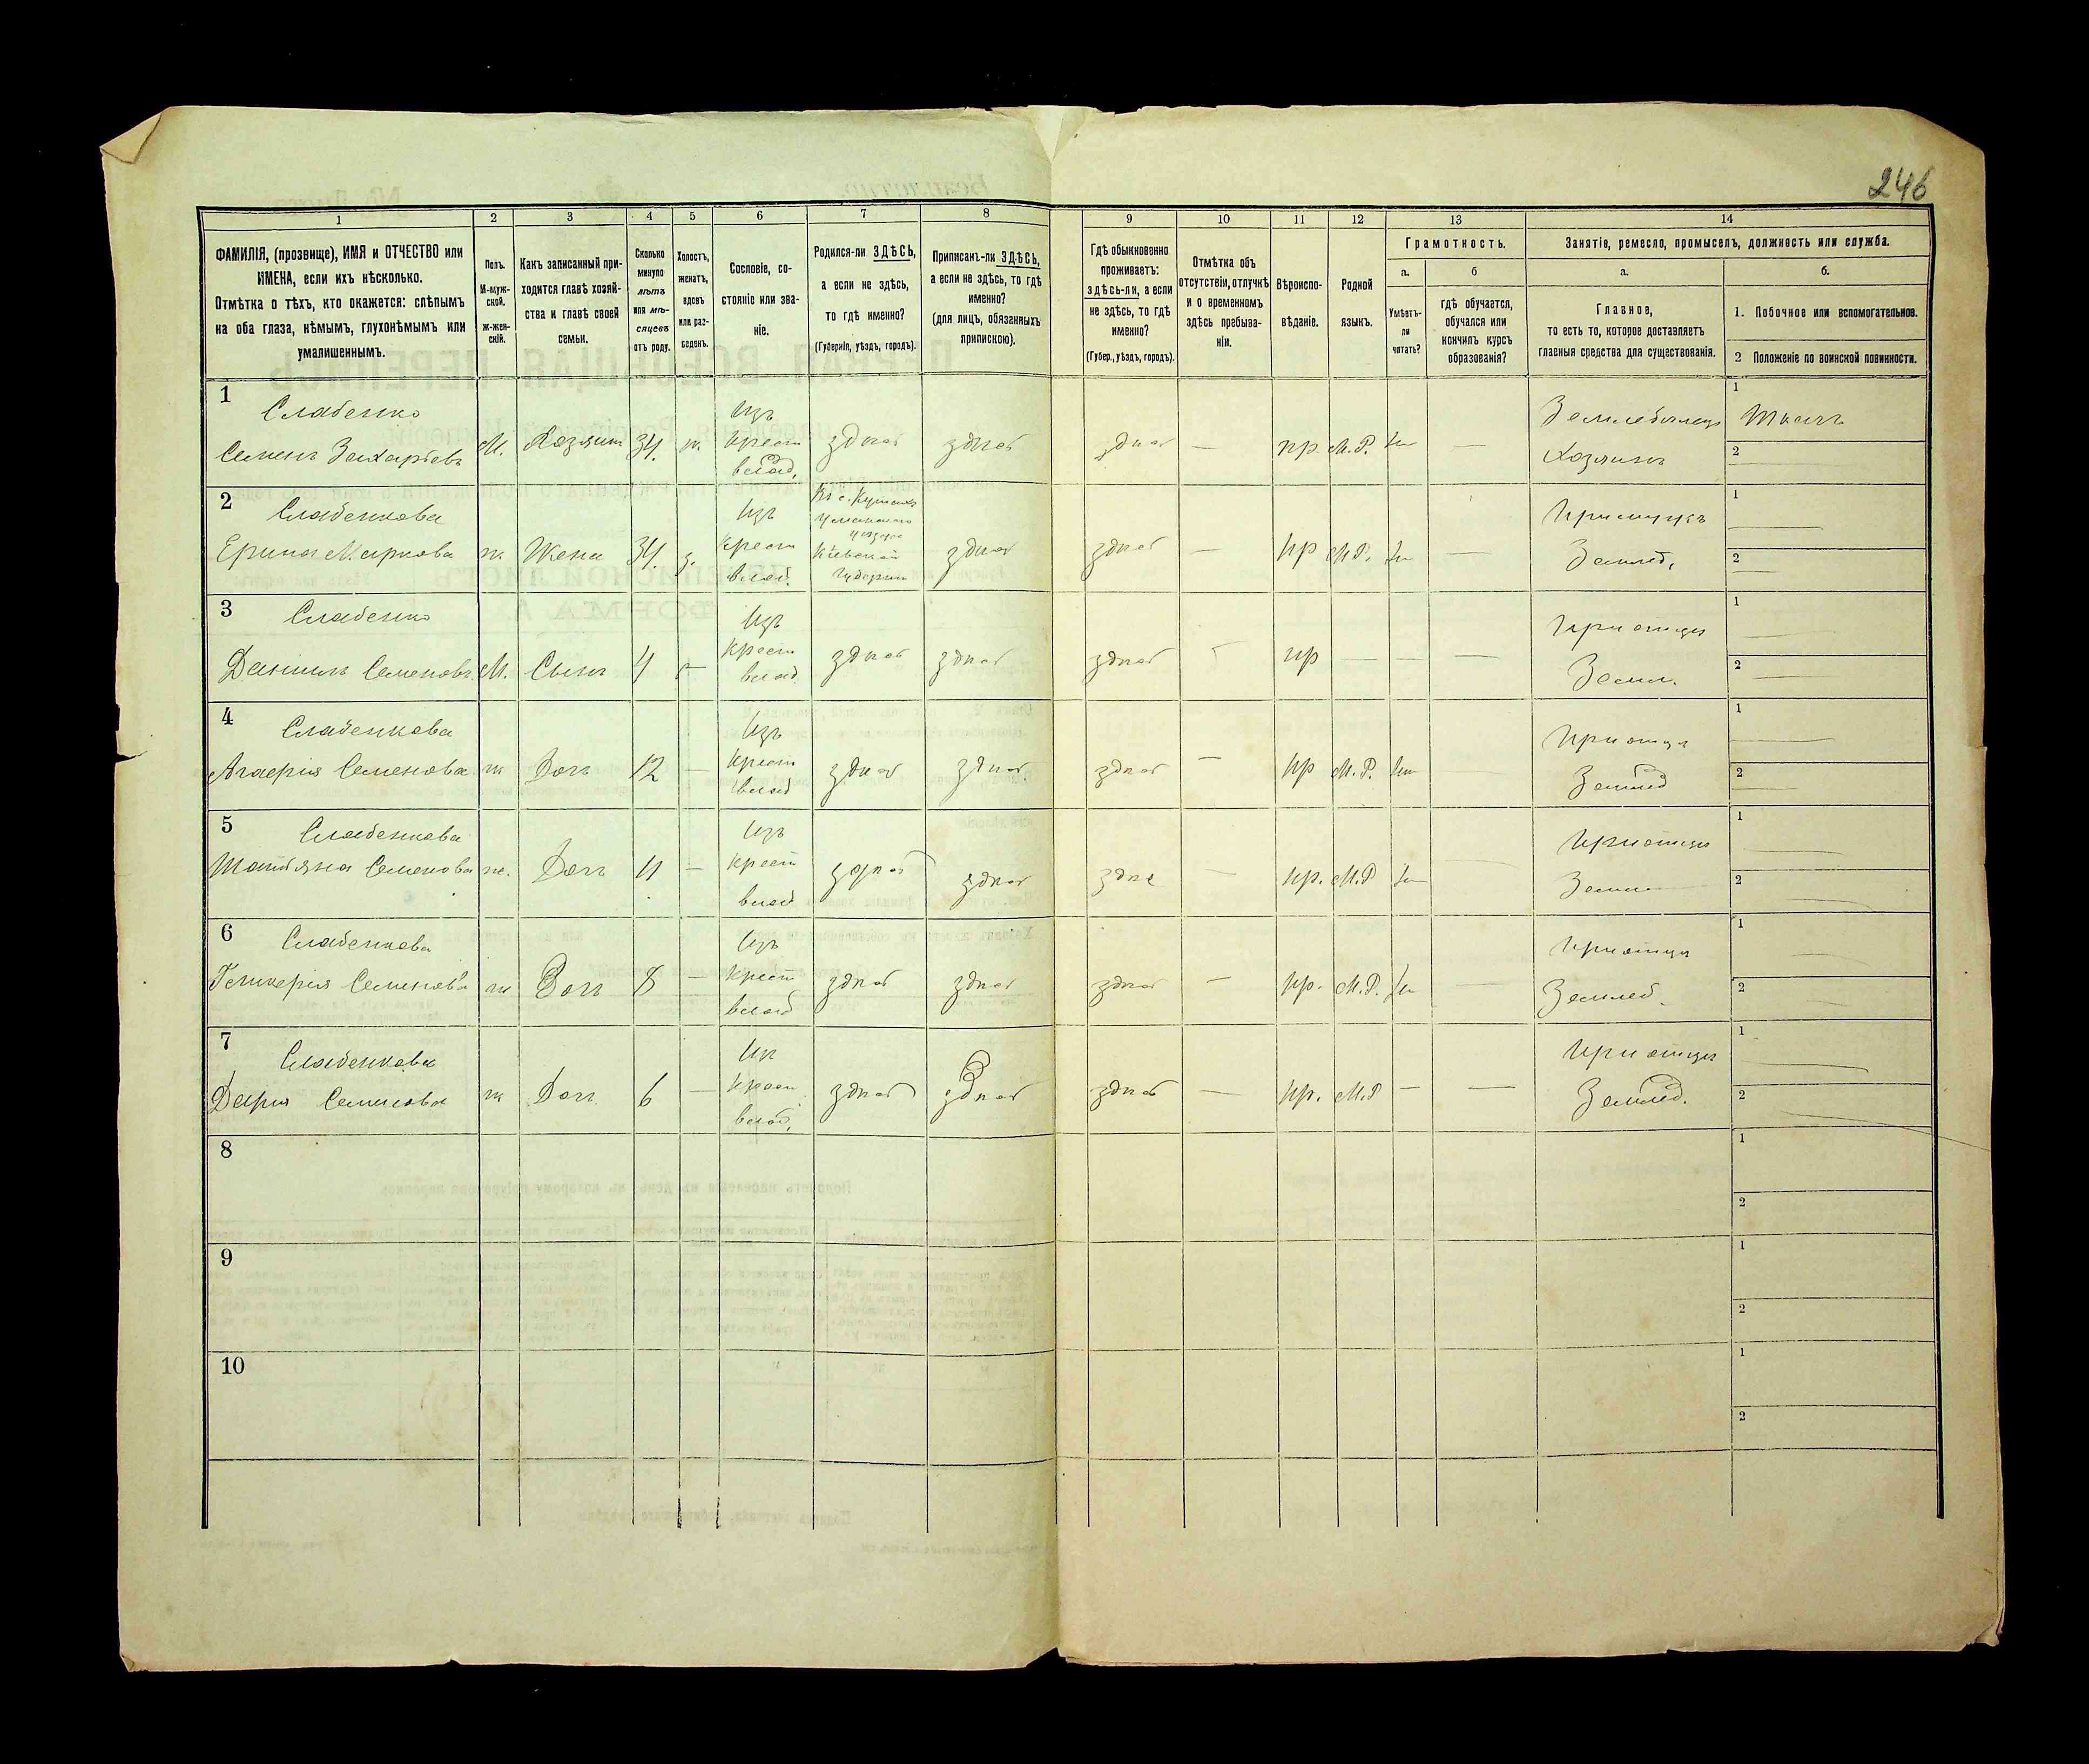 246
1 2 3 4 5 6 7 8 9 10 11 12 13 14
ФАМИЛІЯ, (прозвище), ИМЯ и ОТЧЕСТВО или
ИМЕНА, если ихъ нѣсколько.
Отмѣтка о тѣхъ, кто окажется: слѣпымъ
на оба глаза, нѣмымъ, глухонѣмымъ или
умалишеннымъ.
Полъ.
М-муж-
ской.
ж-жен-
скій.
Какъ записанный при-
ходится главѣ хозяй-
ства и главѣ своей
семьи.
Сколько
минуло
лѣтъ
или мѣ-
сяцевъ
отъ роду.
Холостъ,
женатъ,
вдовъ
или раз-
веденъ.
Сословіе, со-
стояніе или зва-
ніе.
Родился-ли ЗДѢСЬ,
а если не здѣсь,
то гдѣ именно?
(Губернія, уѣздъ, городъ).
Приписанъ-ли ЗДѢСЬ,
а если не здѣсь, то гдѣ
именно?
(для лицъ, обязанныхъ
припискою).
Гдѣ обыкновенно
проживаетъ:
здѣсь-ли, а если
не здѣсь, то гдѣ
именно?
(Губер., уѣздъ, городъ).
Отмѣтка объ
отсутствіи, отлучкѣ
и о временномъ
здѣсь пребыва-
ніи.
Вѣроиспо-
вѣданіе.
Родной
языкъ.
Грамотность.
а.
Умѣетъ-
ли
читать?
б
гдѣ обучается,
обучался или
кончилъ курсъ
образованія?
Занятіе, ремесло, промыселъ, должность или служба.
а.
Главное,
то есть то, которое доставляетъ
главныя средства для существованія.
б.
1. Побочное или вспомогательное.
2 Положеніе по воинской повинности.
1
Слабенко
Семенъ Захарьевъ
М. Хозяинъ 34. ж.
Изъ
крест
влад.
здѣсь здѣсь здѣсь — пр. М.Р. —
Земледелецъ
Хозяинъ
1 Ткачъ
2
2
Слабенкова
Ерина Маркова
ж. Жена 34. з.
Изъ
крест
влад.
Уманскаго
уезда
Кіевской
Губерніи
здѣсь здѣсь — пр М.Р. —
При мужѣ
Землед.
1
2
3
Слабенко
Даніилъ Семеновъ
М. Сынъ 4 —
Изъ
крест
влад.
здѣсь здѣсь здѣсь — пр — — —
При отцѣ
Земл.
1
2
4
Слабенкова
Семенова
ж Дочь 12 —
Изъ
крест
влад
здѣсь здѣсь здѣсь — пр М.Р.
При отцѣ
Землед
1
2
5
Слабенкова
Татьяна Семенова
ж. Дочь —
Изъ
крест
влад
здѣсь здѣсь здѣсь — пр. М.Р
При отцѣ
Земл
1
2
6
Слабенкова
Гликерія Семенова
ж Дочь 8 —
Изъ
крест
влад
здѣсь здѣсь здѣсь — пр. М.Р. —
При отцѣ
Землед.
1
2
7
Слабенкова
Дарья Семенова
ж Дочь 6 —
Из
крест
влад.
здѣсь здѣсь здѣсь — пр. М.Р — —
При отцѣ
Землед.
1
2
8
1
2
9
1
2
10
1
2